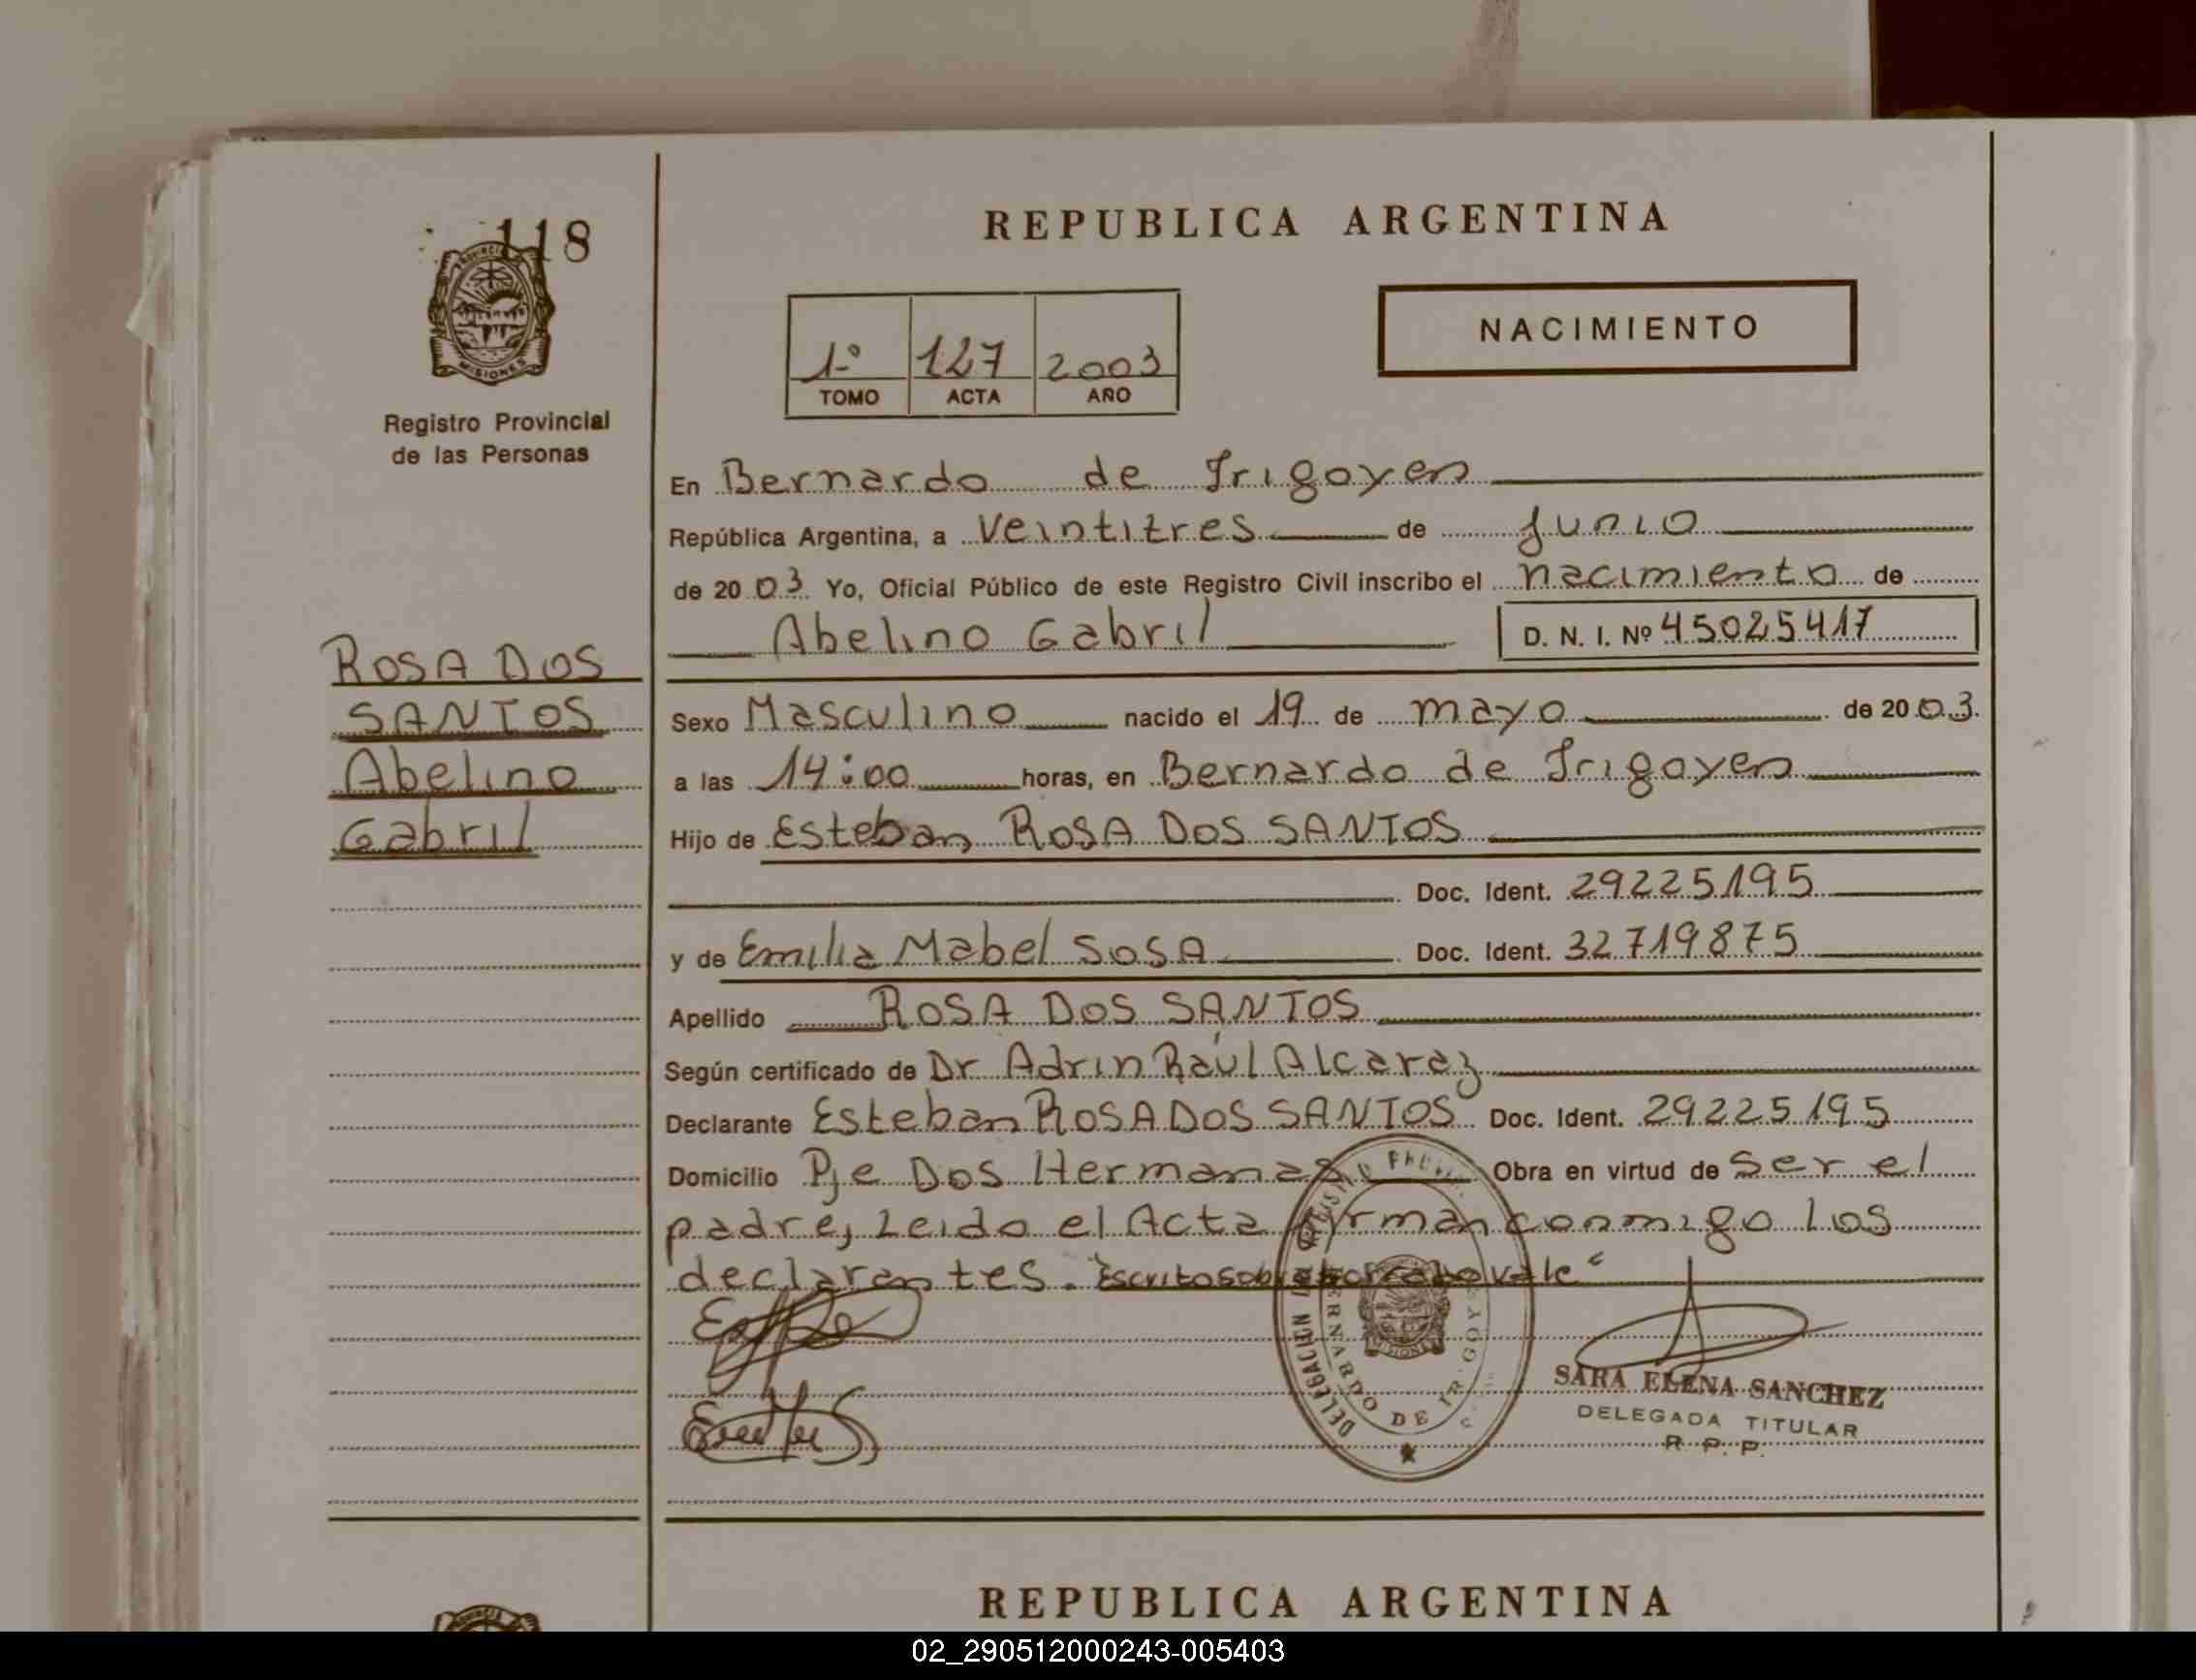 118
PROVINCIA
MISIONES
Registro Provincial
de las Personas
REPUBLICA ARGENTINA
NACIMIENTO
1º 127 2003
TOMO ACTA AÑO
En Bernardo de Irigoyen
República Argentina, a Veintitres de Junio
de 2003 Yo, Oficial Público de este Registro Civil inscribo el nacimiento de
Abelino Gabril D. N. I. Nº 45025417
ROSA DOS
SANTOS
Abelino
Gabril
Sexo Masculino nacido el 19 de mayo de 2003.
a las 14:00 horas, en Bernardo de Irigoyen
Hijo de Esteban ROSA DOS SANTOS
Doc. Ident. 29225195
y de Emilia Mabel SOSA Doc. Ident. 32719875
Apellido ROSA DOS SANTOS
Según certificado de Dr Adrin Raúl Alcaraz
Declarante Esteban ROSA DOS SANTOS Doc. Ident. 29225195
Domicilio Pje Dos Hermanas Obra en virtud de Ser el
padre, Leido el Acta firman conmigo los
declarantes. Escrito sobre vale"
DELEGACION
BERNARDO DE IRIGOYEN
MISIONES
SARA ELENA SANCHEZ
DELEGADA TITULAR
R. P. P.
REPUBLICA ARGENTINA
02_290512000243-005403